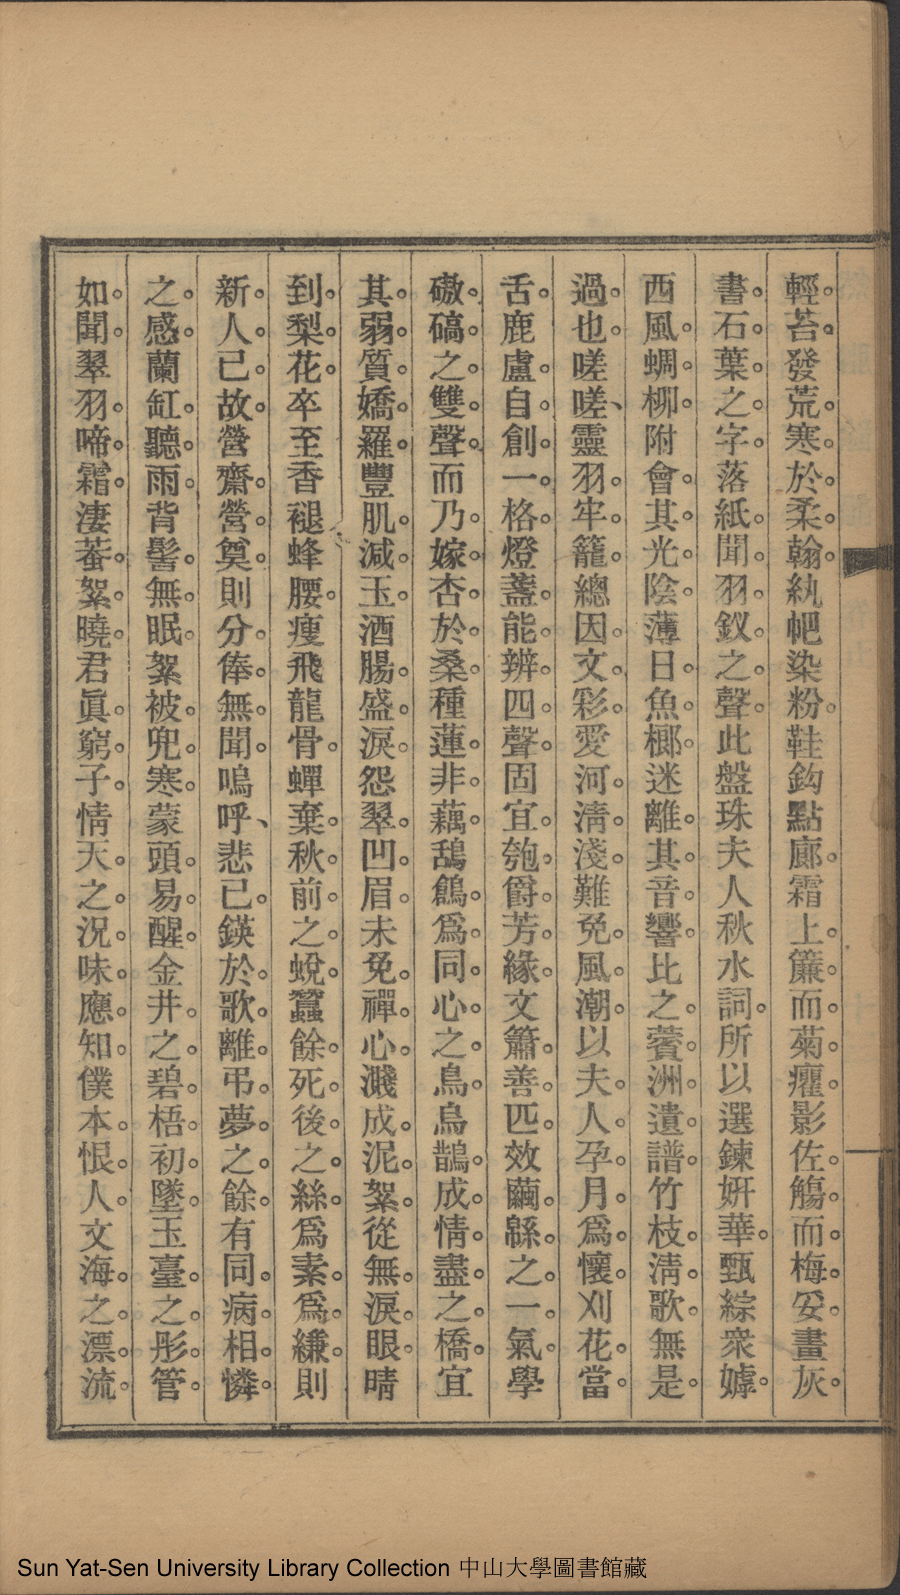 輕苔發荒寒於柔翰紈帊染粉鞋鈎點廊霜上簾而菊癯影佐觴而梅妥畫灰
書石葉之字落紙聞羽釵之聲此盤珠夫人秋水詞所以選鍊妍華甄綜衆嫭
西風蜩柳附會其光陰薄日魚榔迷離其音響比之薲洲遺譜竹枝淸歌無是
過也嗟嗟靈羽牢籠總因文彩愛河淸淺難免風潮以夫人孕月爲懷刈花當
舌鹿盧自創一格燈盞能辨四聲固宜匏爵芳緣文簫善匹效繭緜之一氣學
磝碻之雙聲而乃嫁杏於桑種蓮非藕鴰鶬爲同心之鳥烏鵲成情盡之橋宜
其弱質嬌羅豐肌減玉酒腸盛淚怨翠凹眉未免禪心濺成泥絮從無淚眼晴
到梨花卒至香褪蜂腰瘦飛龍骨蟬棄秋前之蛻蠶餘死後之絲爲素爲縑則
新人已故營齋營奠則分俸無聞嗚呼悲已鍈於歌離弔夢之餘有同病相憐
之感蘭缸聽雨背髻無眠絮被兜寒蒙頭易醒金井之碧梧初墜玉臺之彤管
如聞翠羽啼霜淒蛩絮曉君眞窮子情天之況味應知僕本恨人文海之漂流
Sun Yat-Sen University Library Collection 中山大學圖書館藏